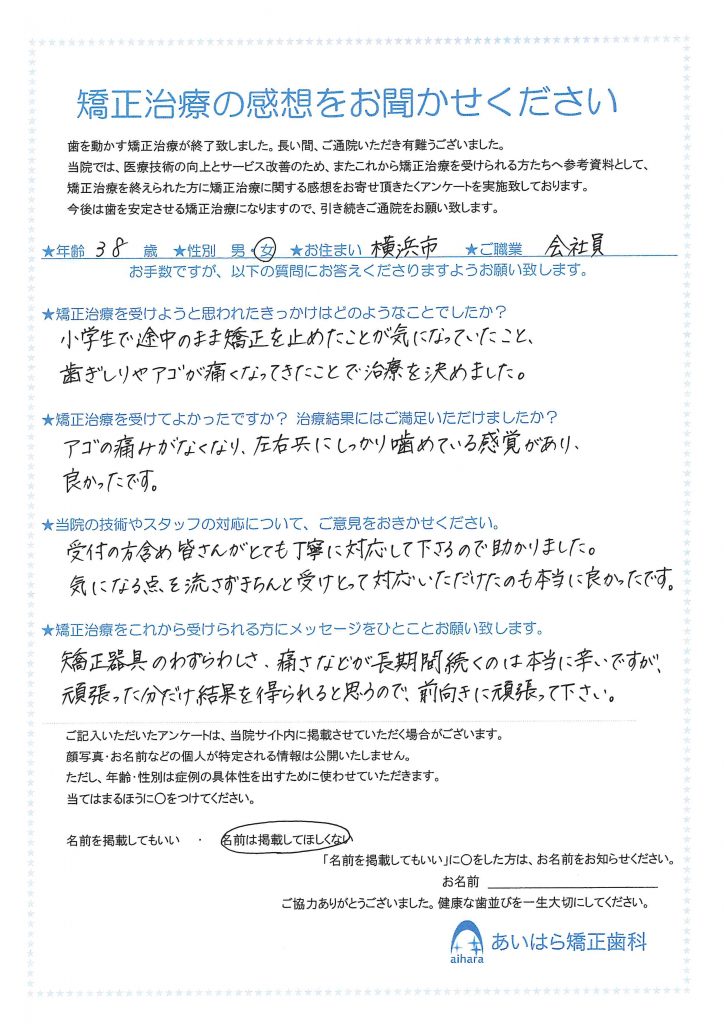 矯正治療の感想をお聞かせください
歯を動かす矯正治療が終了致しました。長い間、ご通院いただき有難うございました。
当院では、医療技術の向上とサービス改善のため、またこれから矯正治療を受けられる方たちへ参考資料として、
矯正治療を終えられた方に矯正治療に関する感想をお寄せ頂きたくアンケートを実施致しております。
今後は歯を安定させる矯正治療になりますので、引き続きご通院をお願い致します。
★年齢 38 歳 ★性別 男・女 ★お住まい 横浜市 ★ご職業 会社員
お手数ですが、以下の質問にお答えくださりますようお願い致します。
★矯正治療を受けようと思われたきっかけはどのようなことでしたか？
小学生で途中のまま矯正を止めたことが気になっていたこと、
歯ぎしりやアゴが痛くなってきたことで治療を決めました。
★矯正治療を受けてよかったですか？ 治療結果にはご満足いただけましたか？
アゴの痛みがなくなり、左右共にしっかり噛めている感覚があり、
良かったです。
★当院の技術やスタッフの対応について、ご意見をおきかせください。
受付の方含め皆さんがとても丁寧に対応して下さるので助かりました。
気になる点を流さずきちんと受けとって対応いただけたのも本当に良かったです。
★矯正治療をこれから受けられる方にメッセージをひとことお願い致します。
矯正器具のわずらわしさ、痛さなどが長期間続くのは本当に辛いですが、
頑張った分だけ結果を得られると思うので、前向きに頑張って下さい。
ご記入いただいたアンケートは、当院サイト内に掲載させていただく場合がございます。
顔写真・お名前などの個人が特定される情報は公開いたしません。
ただし、年齢・性別は症例の具体性を出すために使わせていただきます。
当てはまるほうに○をつけてください。
名前を掲載してもいい ・ 名前は掲載してほしくない
「名前を掲載してもいい」に○をした方は、お名前をお知らせください。
お名前
ご協力ありがとうございました。健康な歯並びを一生大切にしてください。
aihara あいはら矯正歯科